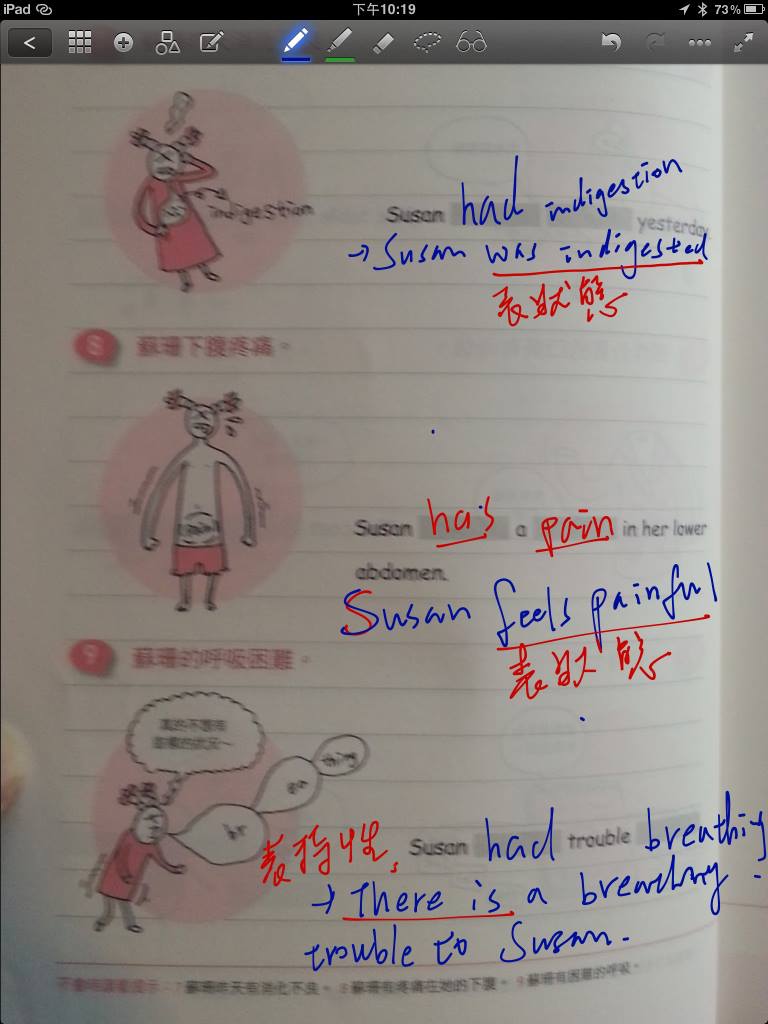 iPad 下午10:19 73%
indigestion
Susan had indigestion yesterday
→ Susan was indigested
表狀態
8 蘇珊下腹疼痛。
Susan has a pain in her lower
abdomen.
Susan feels painful
表狀態
9 蘇珊的呼吸困難。
thing
ea
br
表特性,
Susan had trouble breathing
→ There is a breathing
trouble to Susan.
7 蘇珊昨天有消化不良。 8 蘇珊有疼痛在她的下腹。 9 蘇珊有困難的呼吸。